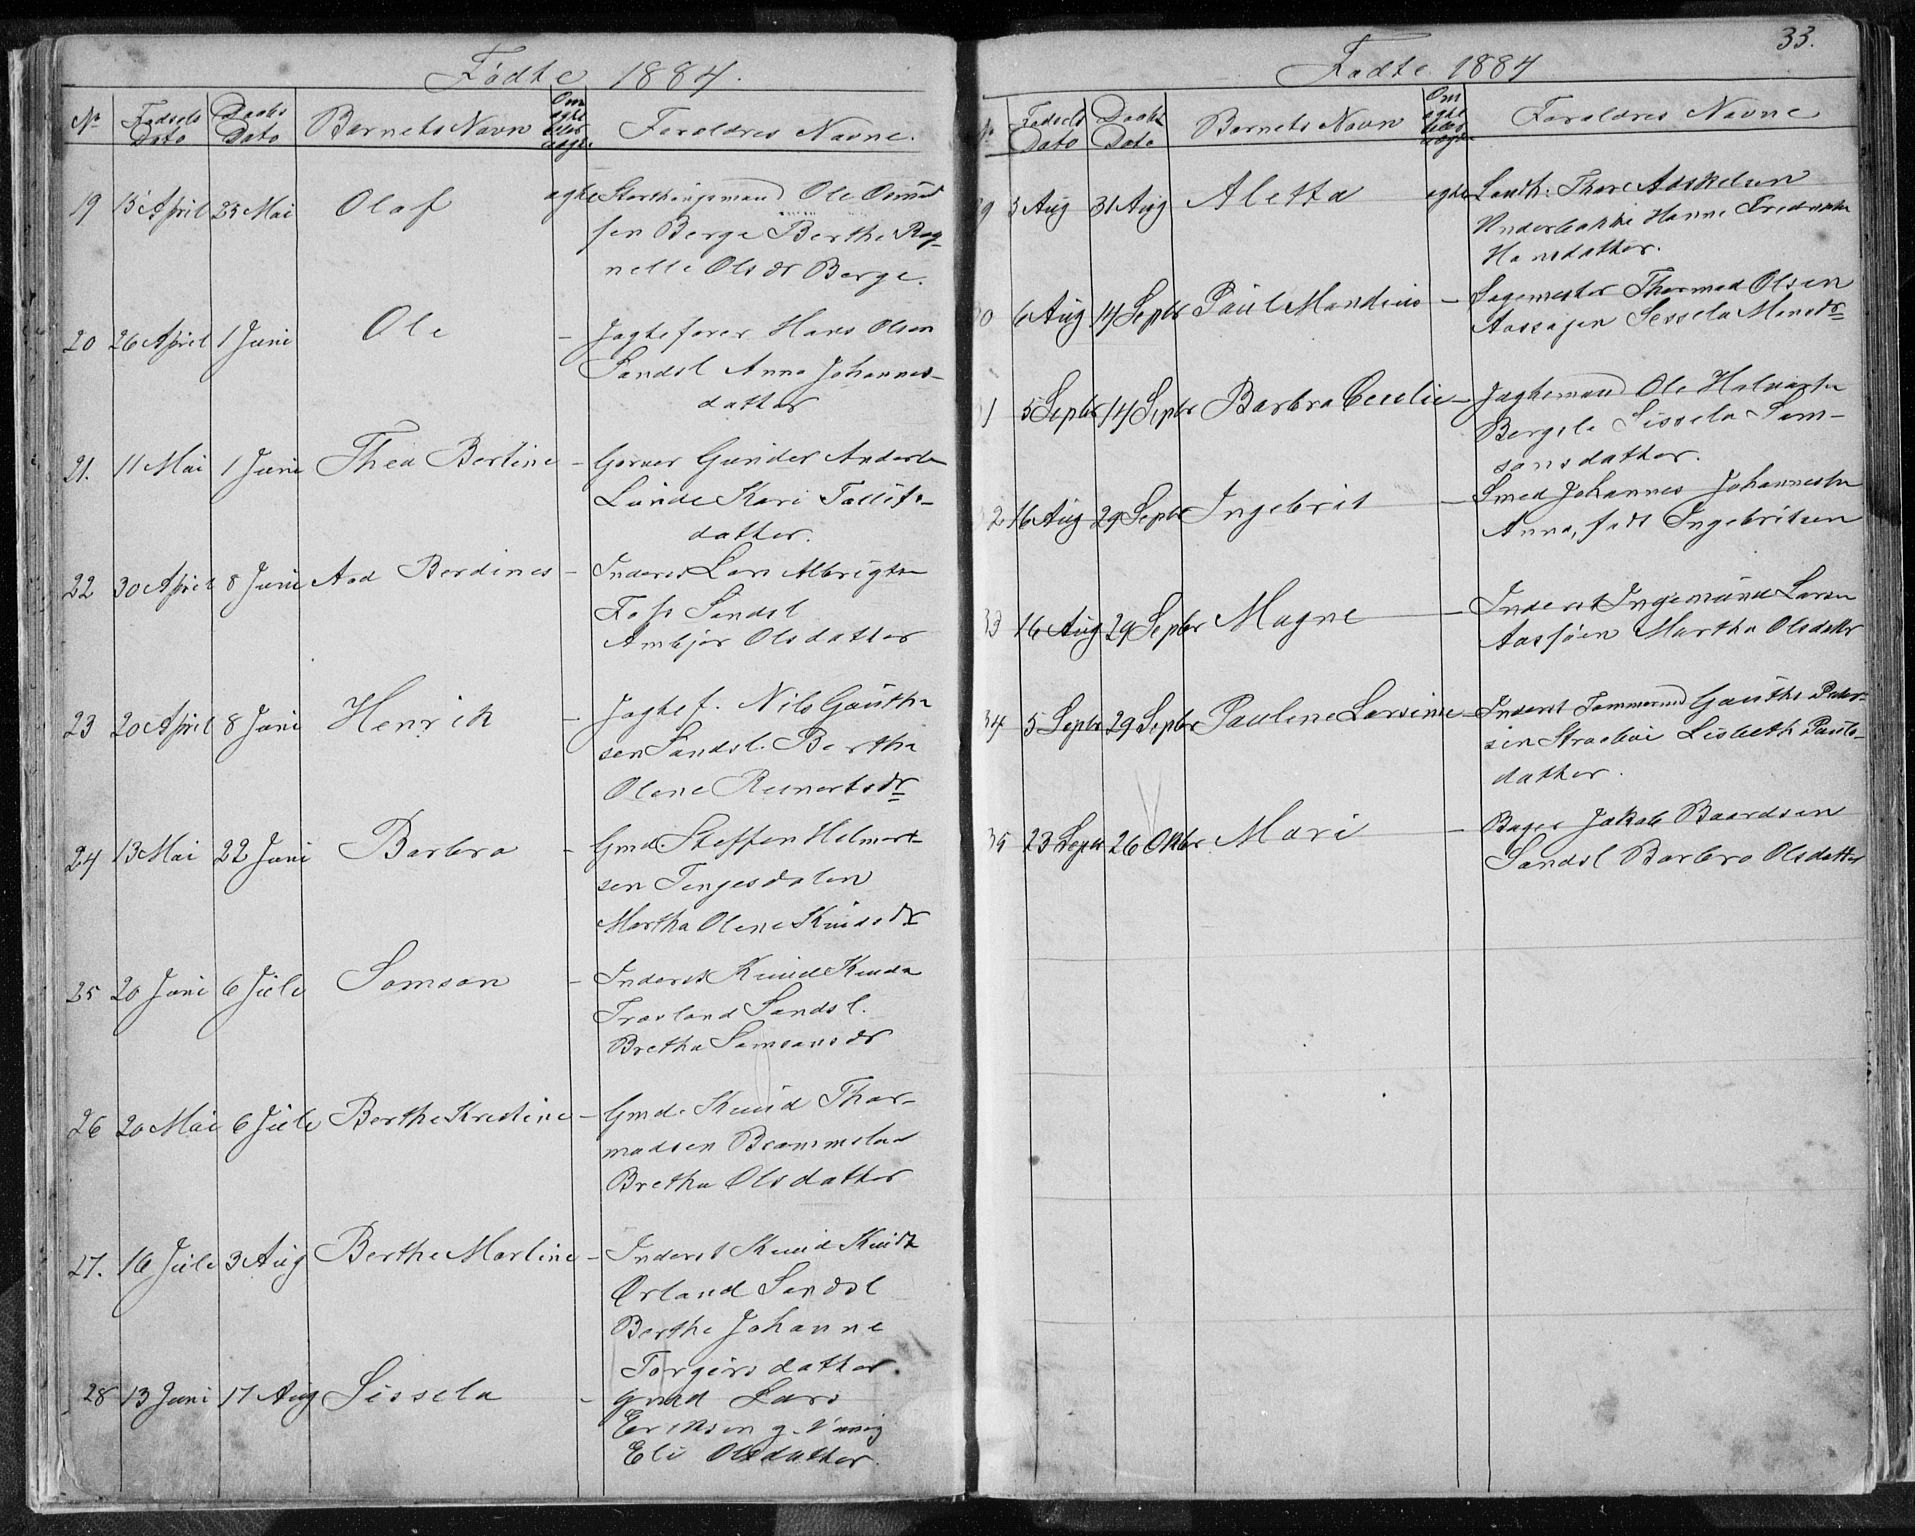 Fødte 1884.
No Fødsels Dato Daabs Dato Barnets Navn Om ægte eller uægte Forældres Navne.
19 15 April 25 Mai Olaf ægte Storthingsmand Ole Osmund
sen Berge Berthe Rag-
nelle Ols dr Berge.
20 26 April 1 Juni Ole - Jagtefører Hans Olsen
Sandsl Anna Johannes-
datter
21. 11 Mai 1 Juni Thea Bertine - Garver Gunder Anders
Lunde Kari Tollifs-
datter.
22 30 April 8 Juni Aad Berdines - Inderst Lars Albrigtsen
Foss Sandsl
Ambjør Olsdatter
23 20 April 8 Juni Henrik - Jagtef. Nils Gauthe
sen Sandsl. Bertha
Olene Reinertsdr
24 13 Mai 22 Juni Barbra - Gmd. Steffen Helmert-
sen Tengesdalen
Martha Olene Knudsdr
25 20 Juni 6 Jule Samson - Inderst Knud Knuds
Travland Sandsl.
Bretha Samsonsdr
26 20 Mai 6 Jule Berthe Kristine - Gmd. Knud Thor-
madsen Brommeland
Bretha Olsdatter
27. 16 Jule 3 Aug Berthe Martine - Inderst Knud Knuds
Ørland Sandsl
Berthe Johanne
Torgersdatter.
28 13 Juni 17 Aug Sissela - gmd Lars
Eriksen g. Vanvig
Eli Olsdatter.
33.
Fødte 1884
No Fødsels Dato Daabs Dato Barnets Navn Om ægte eller uægte Forældres Navne
29 3 Aug 31 Aug Aletta ægte Landh. Thore Adskelsen
Underbakke Hanne Fredrikke
Hansdatter.
30 6 Aug 14 Septbr Paul Mandius - Sagmester Thormod Olsen
Aassagen Sessela Monsdr
31 5 Septbr 14 Septbr Barbra Cecelie - Jagtemand Ole Halvorsen
Bergele Sissela Sam-
sonsdatter.
32 16 Aug 29 Septbr Ingebrit - Smed Johannes Johannesen
Anna, født Ingebritsen
33 16 Aug 29 Septbr Magne - Inderst Ingemund Larsen
Aassøen Martha Olsdatter
34 5 Septbr 29 Septbr Pauline Larsine - Inderst Tømmermd Gauthe Peder-
sen Strabøe Lisbeth Pauls-
datter.
35 23 Septbr 26 Oktbr Mari - Bager Jakob Baardsen
Sandsl Barbro Olsdatter